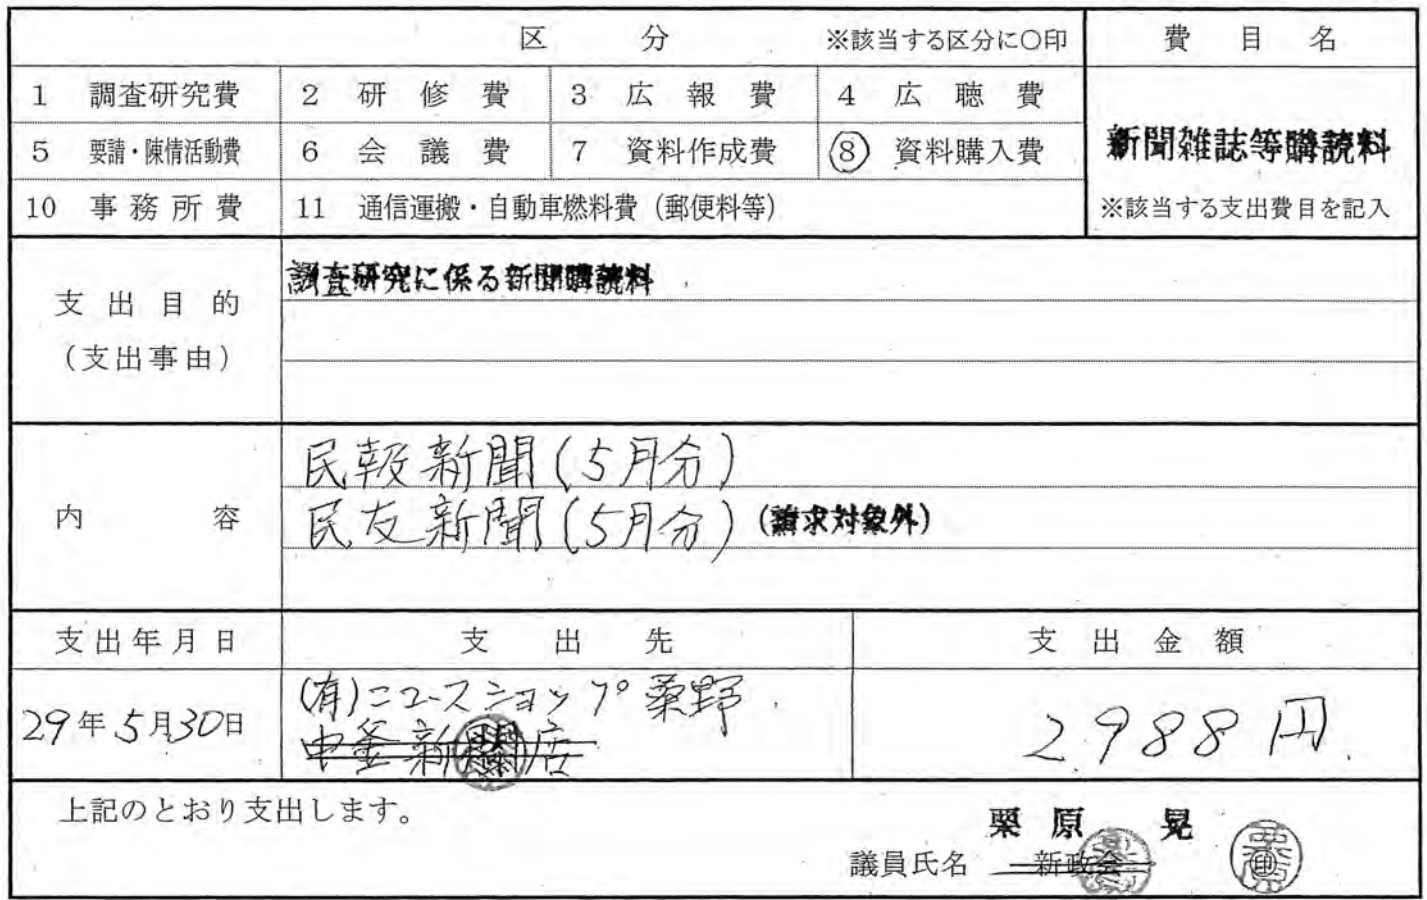 区 分 ※該当する区分に○印 費 目 名
1 調査研究費 2 研 修 費 3 広 報 費 4 広 聴 費
5 要請・陳情活動費 6 会 議 費 7 資料作成費 ⑧ 資料購入費
新聞雑誌等購読料
10 事 務 所 費 11 通信運搬・自動車燃料費（郵便料等）
※該当する支出費目を記入
支 出 目 的
（支出事由）
調査研究に係る新聞購読料
内 容
民報新聞(5月分)
民友新聞(5月分) (請求対象外)
支出年月日 支 出 先 支 出 金 額
29年5月30日
(有)ニュースショップ 栗野
中釜新聞店
2988円
上記のとおり支出します。
栗 原 晃
議員氏名 新政会 ㊞